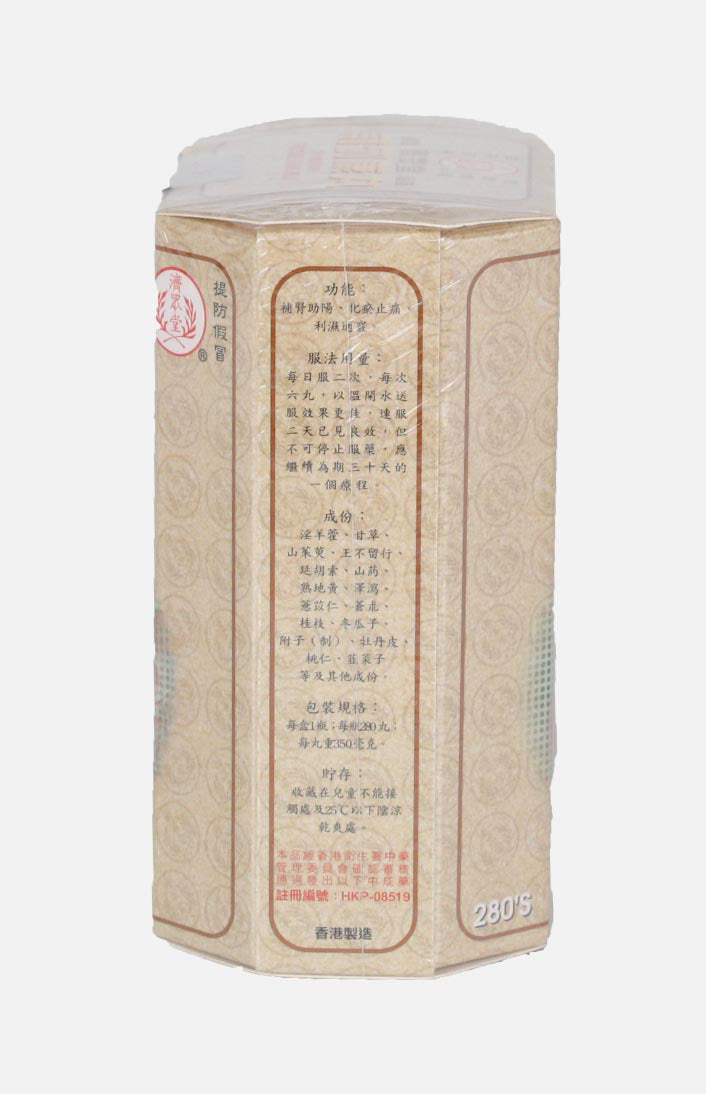 濟眾堂
®
提防假冒
功能：
補腎助陽、化瘀止痛、
利濕通竅。
服法用量：
每日服二次，每次
六丸，以溫開水送
服效果更佳，連服
二天已見良效，但
不可停止服藥，應
繼續為期三十天的
一個療程。
成份：
淫羊藿、甘草、
山茱萸、王不留行、
延胡索、山藥、
熟地黃、澤瀉、
薏苡仁、蒼朮、
桂枝、冬瓜子、
附子（制）、牡丹皮、
桃仁、韭菜子
等及其他成份。
包裝規格：
每盒1瓶；每瓶280丸；
每丸重350毫克。
貯存：
收藏在兒童不能接
觸處及25℃以下陰涼
乾爽處。
本品經香港衛生署中藥
管理委員會確認審核
通過發出以下中成藥
註冊編號：HKP-08519
香港製造
280'S